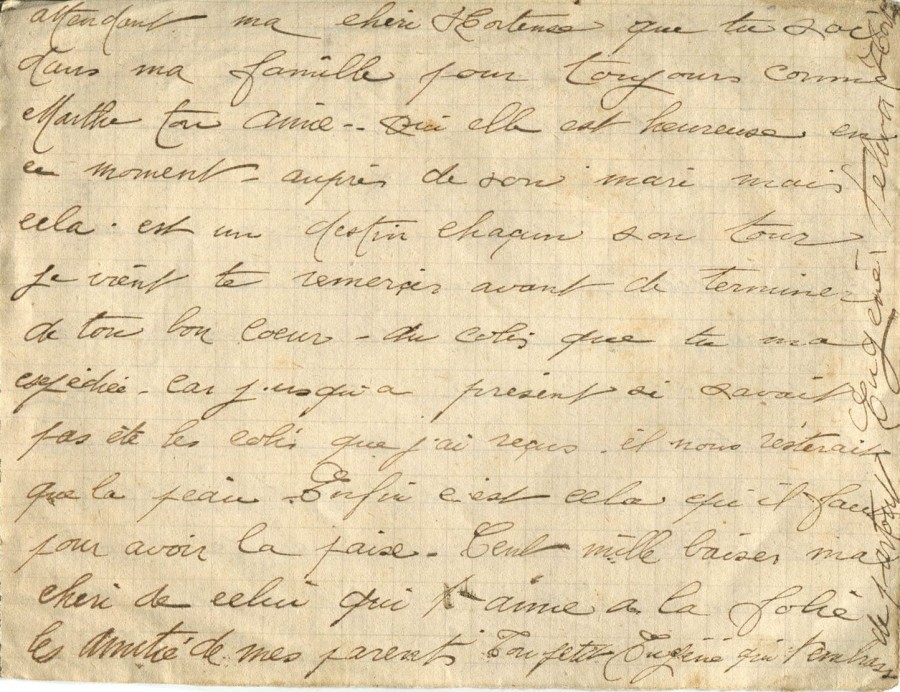 attendant ma chéri Hortense que tu soi
dans ma famille pour toujours comme
Marthe ton amie -- oui elle est heureuse en
ce moment - auprès de son mari mais
cela . est un destin chaqun son tour
je vient te remerçir avant de terminer
de ton bon coeur - du colis que tu ma
expédiée - car jusqu'a présent si savait
pas été les colis que j'ai reçus . il nous résterait
que la peau - Enfin c'est cela qu'il faut
pour avoir la paise - Cent mille baiser ma
chéri de celui qui t'aime a la folie
les amitié de mes parents Ton petit Eugène qui t'embras
de partout Eugène